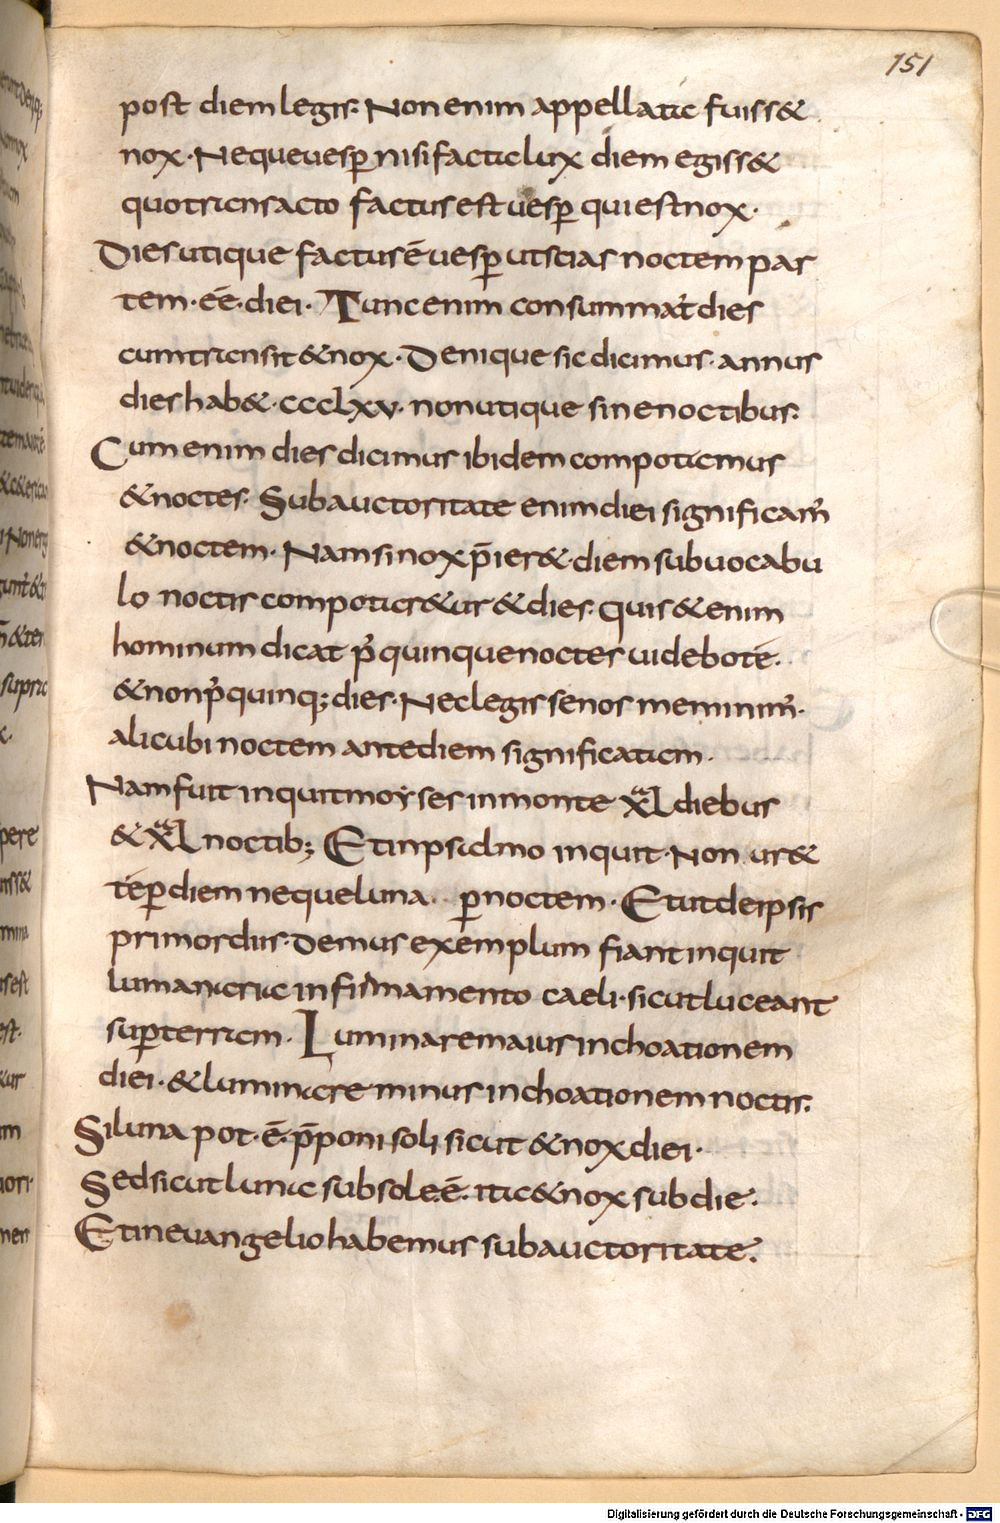 151
post diem legis. Non enim appellata fuiss&
nox. Neque uesp̄ nisi facta lux diem egiss&
quo transacto factus est uesp̄ qui est nox.
Dies utique factus ē uesp̄ ut scias noctem par
tem. eē. diei. Tunc enim consummat̃ dies
cum transit & nox. Denique sic dicimus. annus
dies hab&. ccclxv. non utique sine noctibus.
Cum enim dies dicimus ibidem computamus
& noctes. Sub auctoritate enim diei significam̃
& noctem. Nam si nox p̄ier& diem sub uocabu
lo noctis computar&ur & dies. quis & enim
hominum dicat p̃ quinque noctes uidebo te.
& non p̃ quinq; dies. Nec legisse nos meminim̃.
alicubi noctem ante diem significatam.
Nam fuit inquit moyses in monte xl diebus
& xl noctib; Et in psalmo inquit. Non ur&
te per diem neque luna. p noctem. Et ut de ipsis
primordiis demus exemplum fiant inquit
luminaria in firmamento caeli. sicut luceant
sup terram. Luminare maius inchoationem
diei. & luminare minus inchoationem noctis.
Si luna pot. ē. p̄poni soli sicut & nox diei.
Sed sicut luna sub sole. ē. ita & nox sub die.
Et in euangelio habemus sub auctoritate.
Digitalisierung gefördert durch die Deutsche Forschungsgemeinschaft - DFG